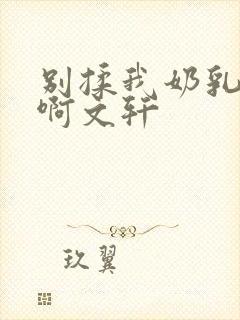 别揉我奶乳
啊文轩
玖翼